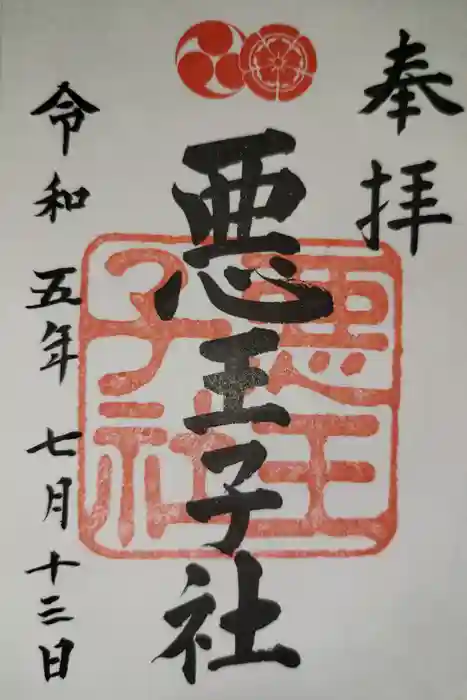 奉拝
悪王子社
悪王
子社
令和五年七月十三日